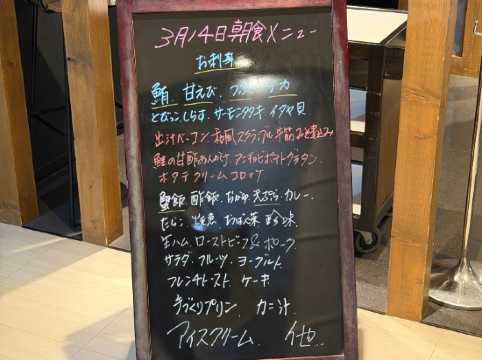 3月14日朝食メニュー
お刺身
鮪、甘えび、つぶ、イカ
とびっこしらす、サーモンタタキ、イタヤ貝
出汁ベーコン、和風スクランブル、牛筋みそ煮込み
鮭の甘酢あんかけ、アンチョビポテトグラタン、
ホタテクリームコロッケ
蟹飯、酢飯、おかゆ、天ぷら、カレー、
たらこ、焼魚、おばん菜、珍味、
生ハム、ローストビーフ&ポーク、
サラダ、フルーツ、ヨーグルト、
フレンチトースト、ケーキ、
手づくりプリン、カニ汁、
アイスクリーム、他…